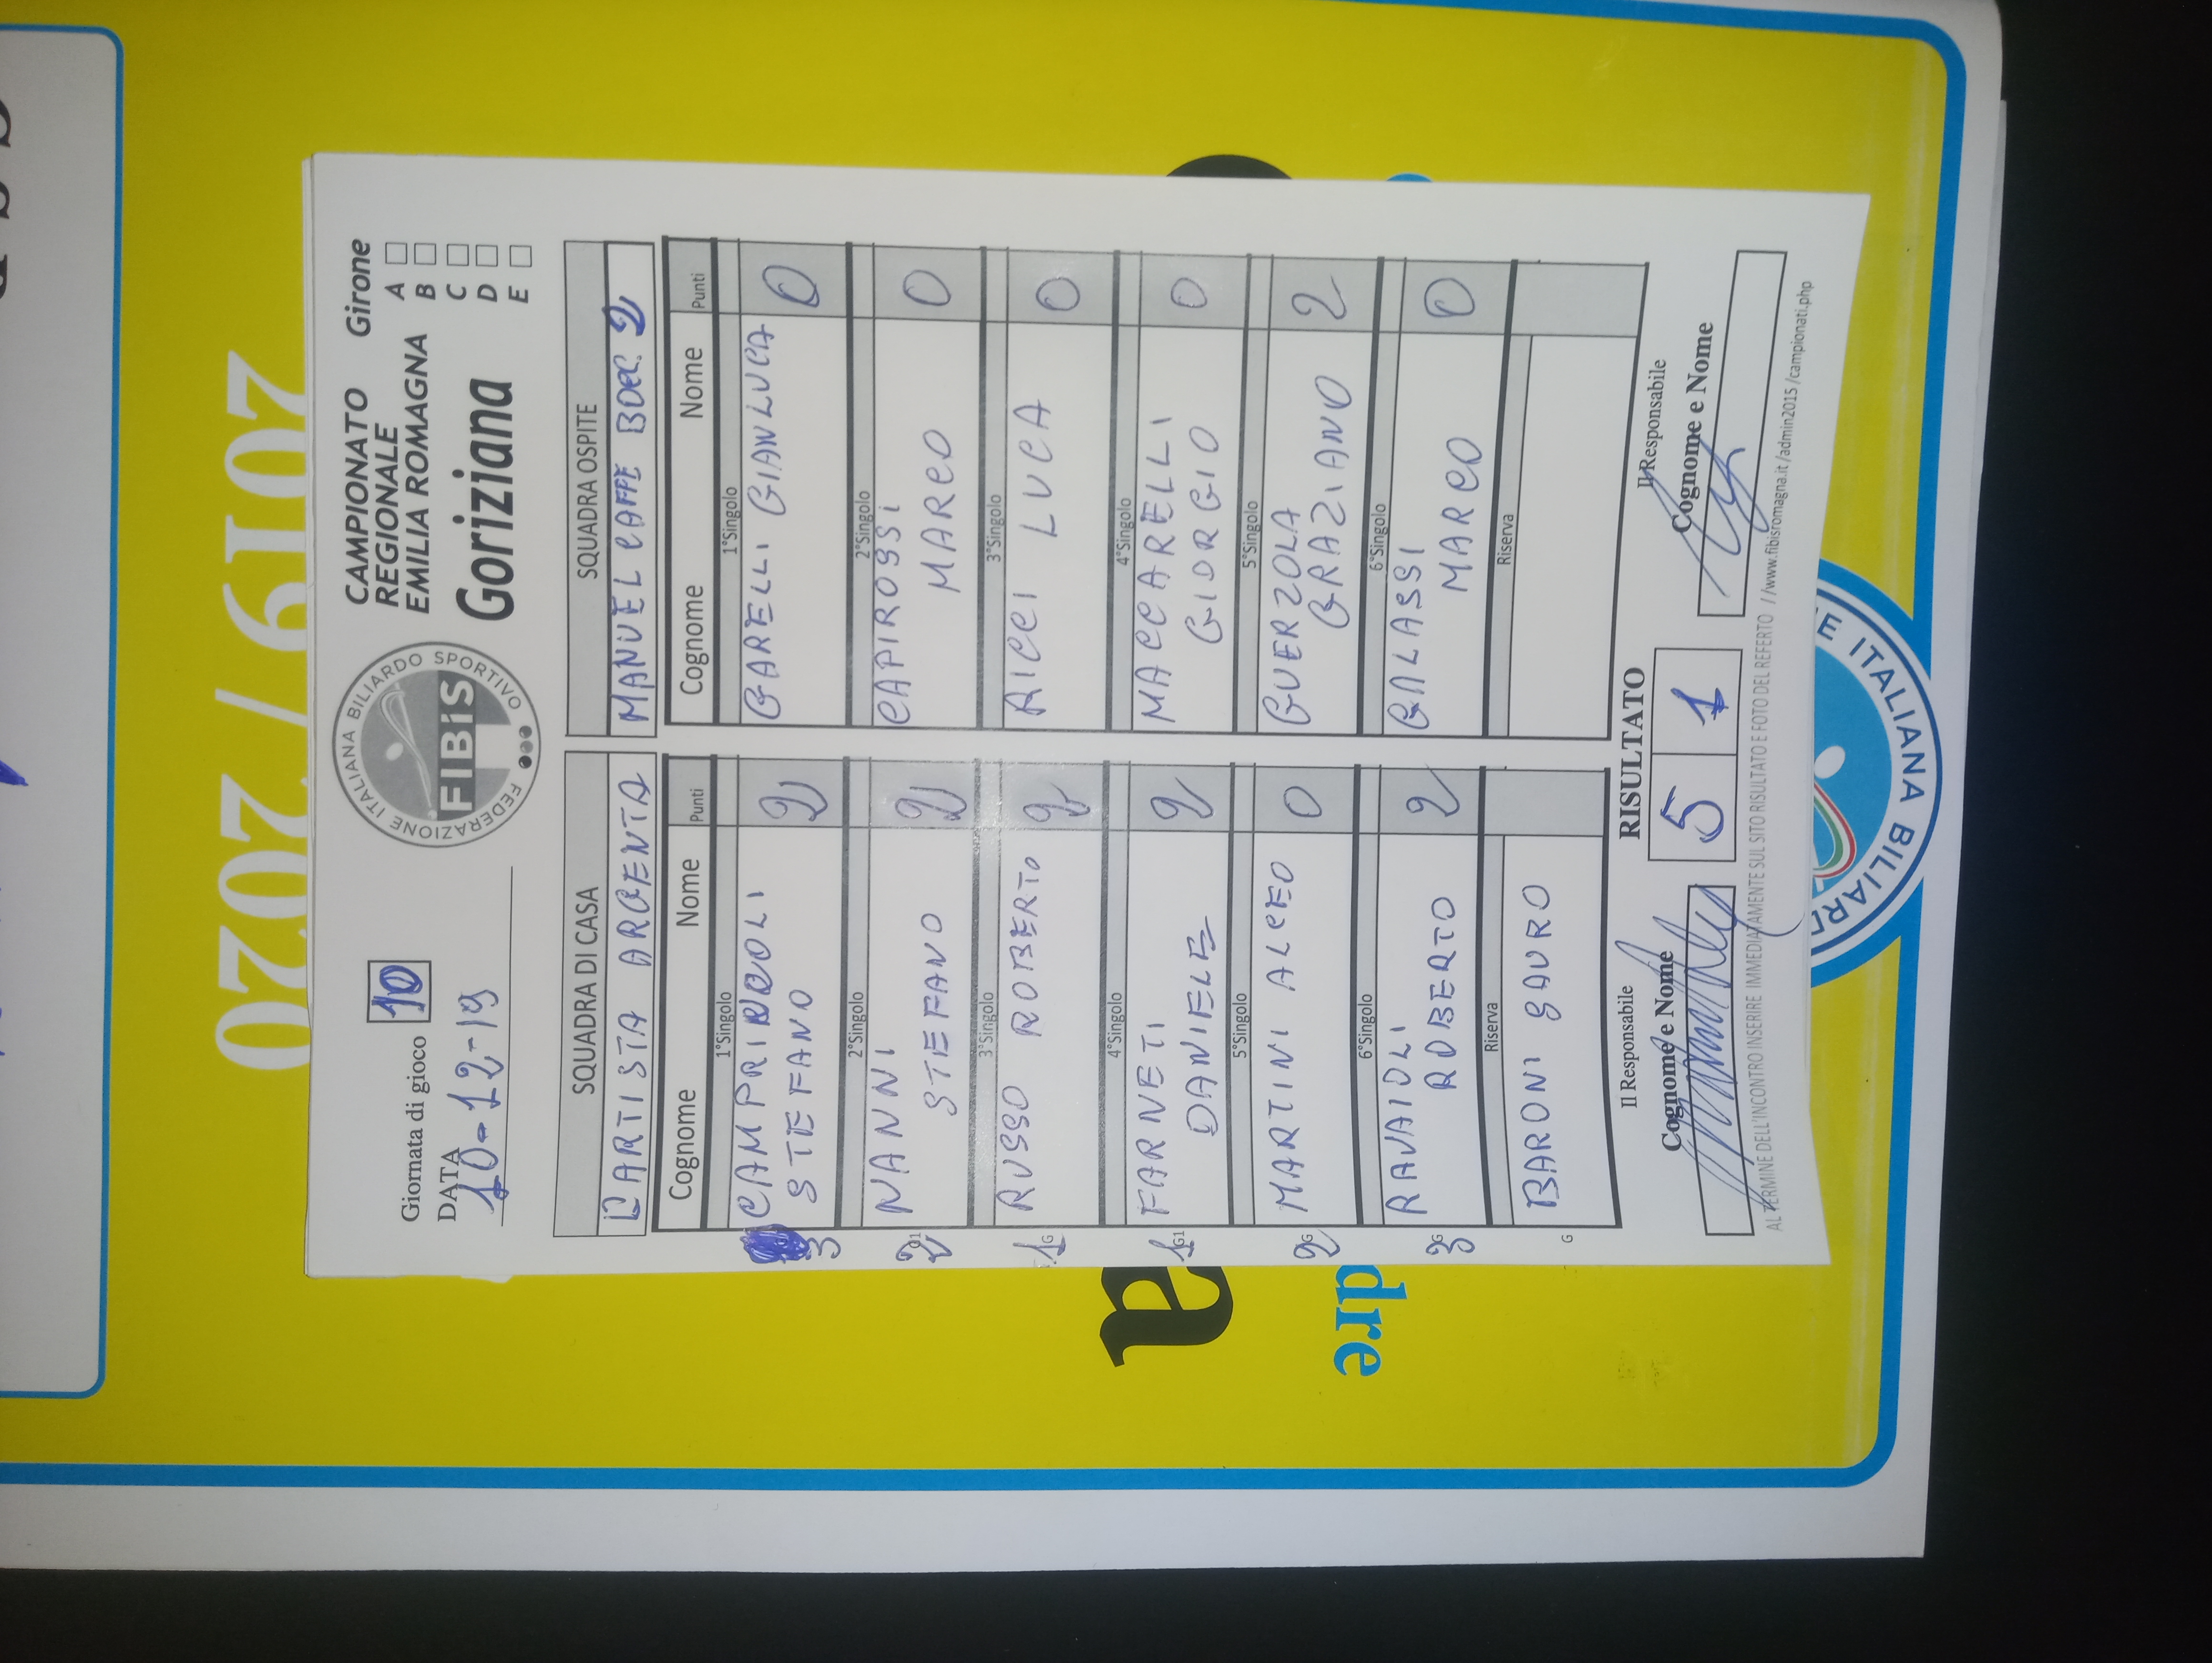 FEDERAZIONE ITALIANA BILIARDO SPORTIVO
FIBiS
CAMPIONATO
REGIONALE
EMILIA ROMAGNA
Goriziana
Girone
A
B
C
D
E
Giornata di gioco 10
DATA
10-12-19
SQUADRA DI CASA
ARTISTA ARGENTA
Cognome Nome Punti
1°Singolo
CAMPRINOLI
STEFANO 2
3
2°Singolo
NANNI
STEFANO 2
2
3°Singolo
RUSSO ROBERTO 2
1 G
4°Singolo
FARNETI
DANIELE 2
1 G1
5°Singolo
MARTINI ALCEO 0
2 G
6°Singolo
RAVAIOLI
ROBERTO 2
3 G
Riserva
BARONI SAURO
G
SQUADRA OSPITE
MANUEL CAFFE BOCC. 2
Cognome Nome Punti
1°Singolo
GARELLI GIANLUCA 0
2°Singolo
CAPIROSSI
MARCO 0
3°Singolo
RICCI LUCA 0
4°Singolo
MACCARELLI
GIORGIO 0
5°Singolo
GUERZOLA
GRAZIANO 2
6°Singolo
GALASSI
MARCO 0
Riserva
RISULTATO
5 1
Il Responsabile
Cognome e Nome
Il Responsabile
Cognome e Nome
AL TERMINE DELL'INCONTRO INSERIRE IMMEDIATAMENTE SUL SITO RISULTATO E FOTO DEL REFERTO //www.fibisromagna.it/admin2015/campionati.php
2019/2020
a
dre
E ITALIANA BILIARD